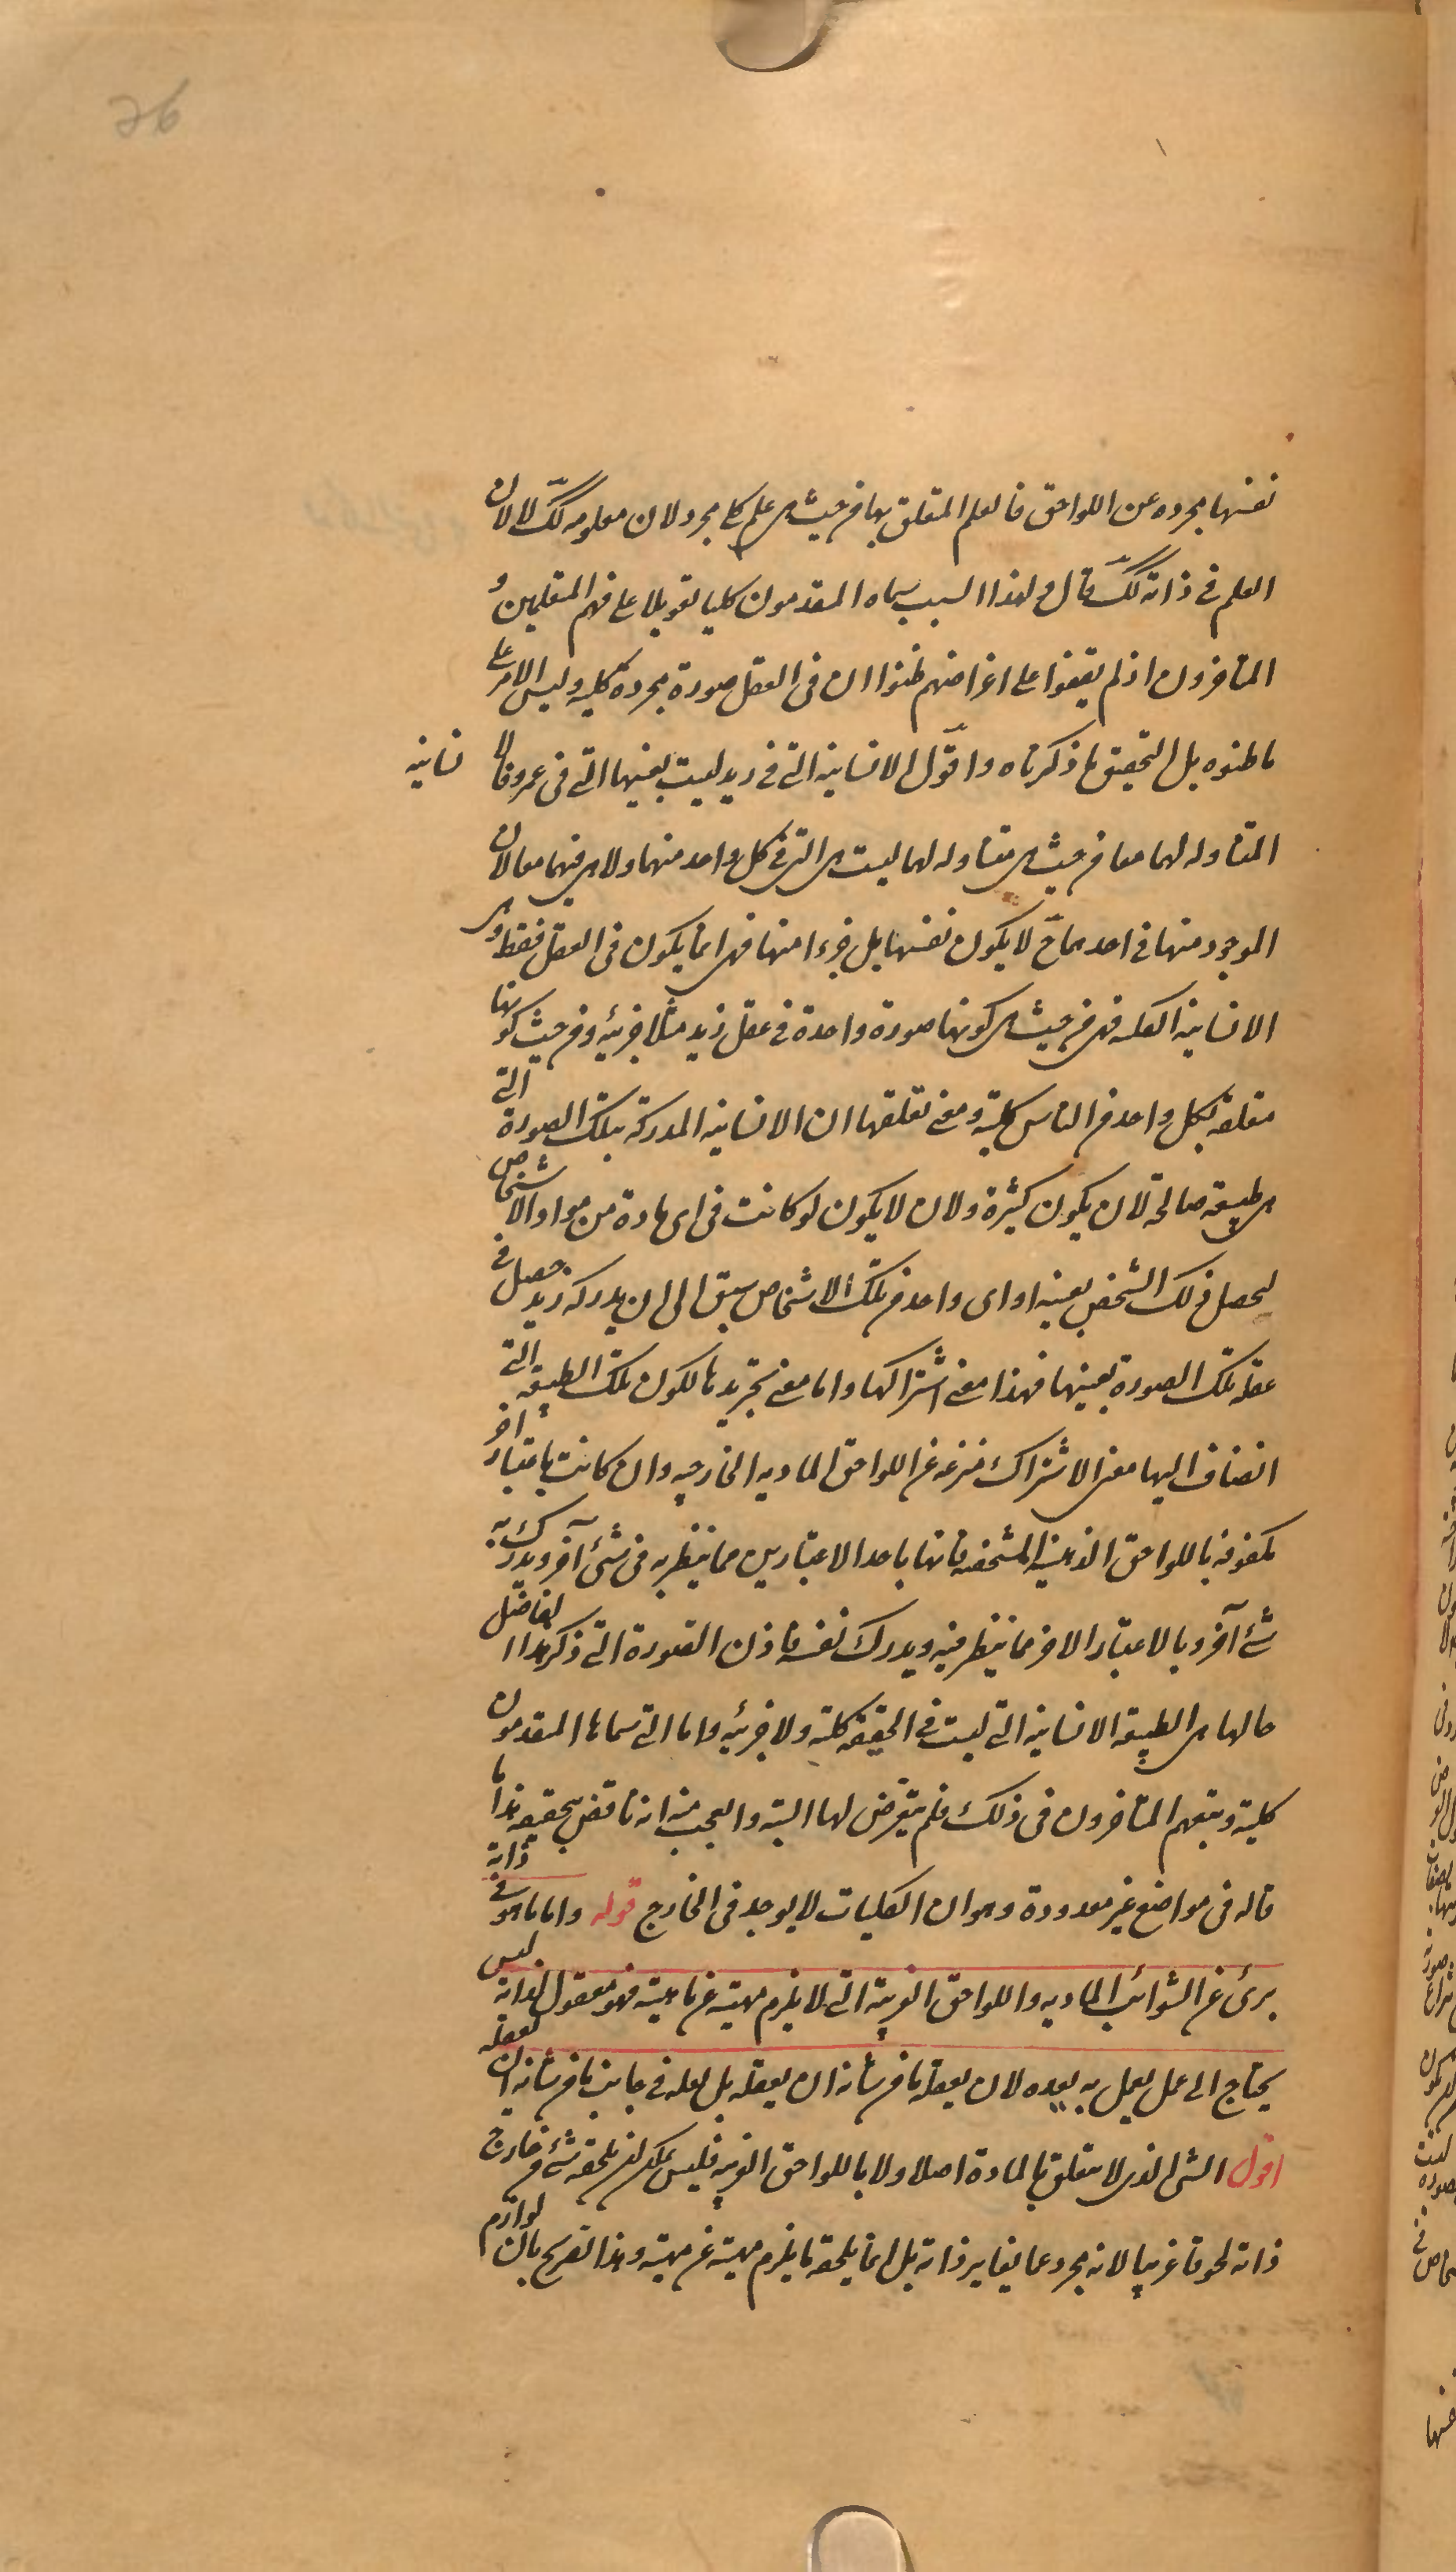 26
نفسها مجرده عن اللواحق فالعلم المتعلق بها من حيث هى علم كلى مجرد لان معلومه كك لا لان
العلم فى ذاته كك قال ولهذا السبب سماه المتقدمون كليا تعويلا على فهم المتعلمين و
المتاخرون اذ لم يقفوا على اغراضهم ظنوا ان فى العقل صورة مجردة كلية وليس الامر على
ما ظنوه بل التحقيق ما ذكرناه واقول الانسانية التى فى زيد ليست بعينها التى فى عمرو فالا نسانيه
المتناوله لهما معا من حيث هى متناوله لهما ليست هى التى فى كل واحد منهما ولا هى فيهما معا لان
الموجود منها فى احدهما ح لا يكون نفسها بل جزءا منها فهى انما يكون فى العقل فقط وهى
الانسانية الكليه فهى من حيث هى كونها صورة واحدة فى عقل زيد مثلا جزئيه ومن حيث كونها
متعلقه بكل واحد من الناس كلية ومعنى تعلقها ان الانسانيه المدركة بتلك الصورة التى
هى طبيعه صالحة لان يكون كثيرة ولان لا يكون لو كانت فى اى مادة من مواد الاشخاص
لحصل ذلك الشخص بعينه او اى واحد من تلك الاشخاص سبق الى ان يدركه زيد حصل فى
عقله تلك الصورة بعينها فهذا معنى اشتراكها واما معنى تجريدها لكون تلك الطبيعه التى
انضاف اليها معنى الاشتراك منزعه عن اللواحق الماديه الخارجيه وان كانت باعتبار اخر
مكفوفه باللواحق الذهنيه المشخصه فانها باحد الاعتبارين مما ينظر به فى شئ آخر ويدرك به
شئ آخر وبالاعتبار الاخر مما ينظر فيه ويدرك نفسه فاذن الصورة التى ذكر هذا الفاضل
حالها هى الطبيعه الانسانية التى ليست فى الحقيقه كليه ولا جزئيه واما التى سماها المتقدمون
كلية وتبعهم المتاخرون فى ذلك فلم يتعرض لها البته والعجب منه انه ناقض تحقيقه هذا ما
قاله فى مواضع غير معدودة وهو ان الكليات لا يوجد فى الخارج قوله واما ما هو فى ذاته
برئ عن الشوائب الماديه واللواحق الغريبة التى لا يلزم مهيته عن ماهيته فهو معقول لذاته ليس
يحتاج الى عمل يعمل به يعده لان يعقله ما من شانه ان يعقله بل لعله فى جانب ما من شانه ان يعقله
اقول الشى الذى لا يتعلق بالمادة اصلا ولا باللواحق الغريبه فليس يمكن ان يلحقه شئ من خارج
ذاته لحوقا غريبا لانه مجرد عما يغاير ذاته بل انما يلحقه ما يلزم مهيته عن مهيته وهذا تصريح بان لوازم